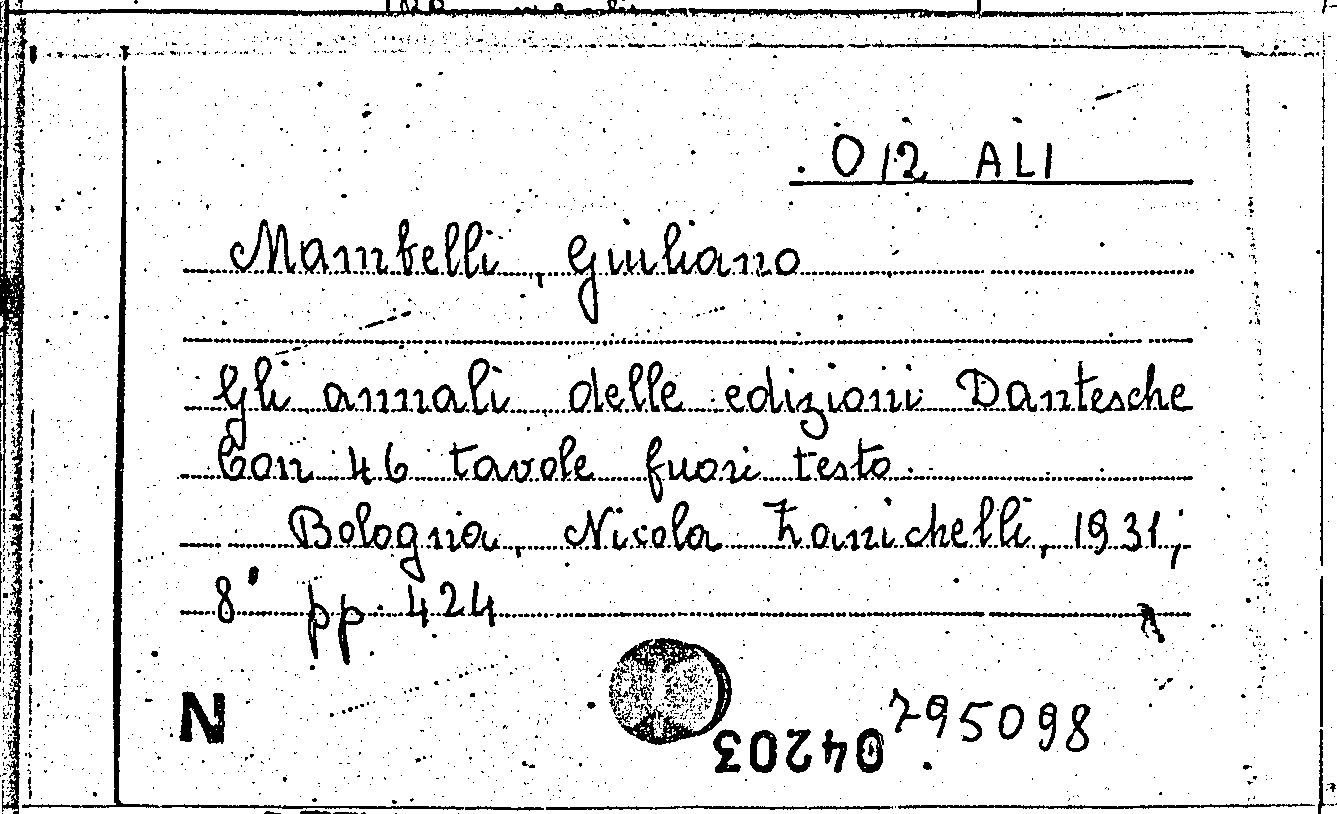 012 ALI
Mambelli, Giuliano
Gli annali delle edizioni Dantesche
Con 46 tavole fuori testo.
Bologna, Nicola Zanichelli, 1931;
8° pp. 424
N
795098
04203